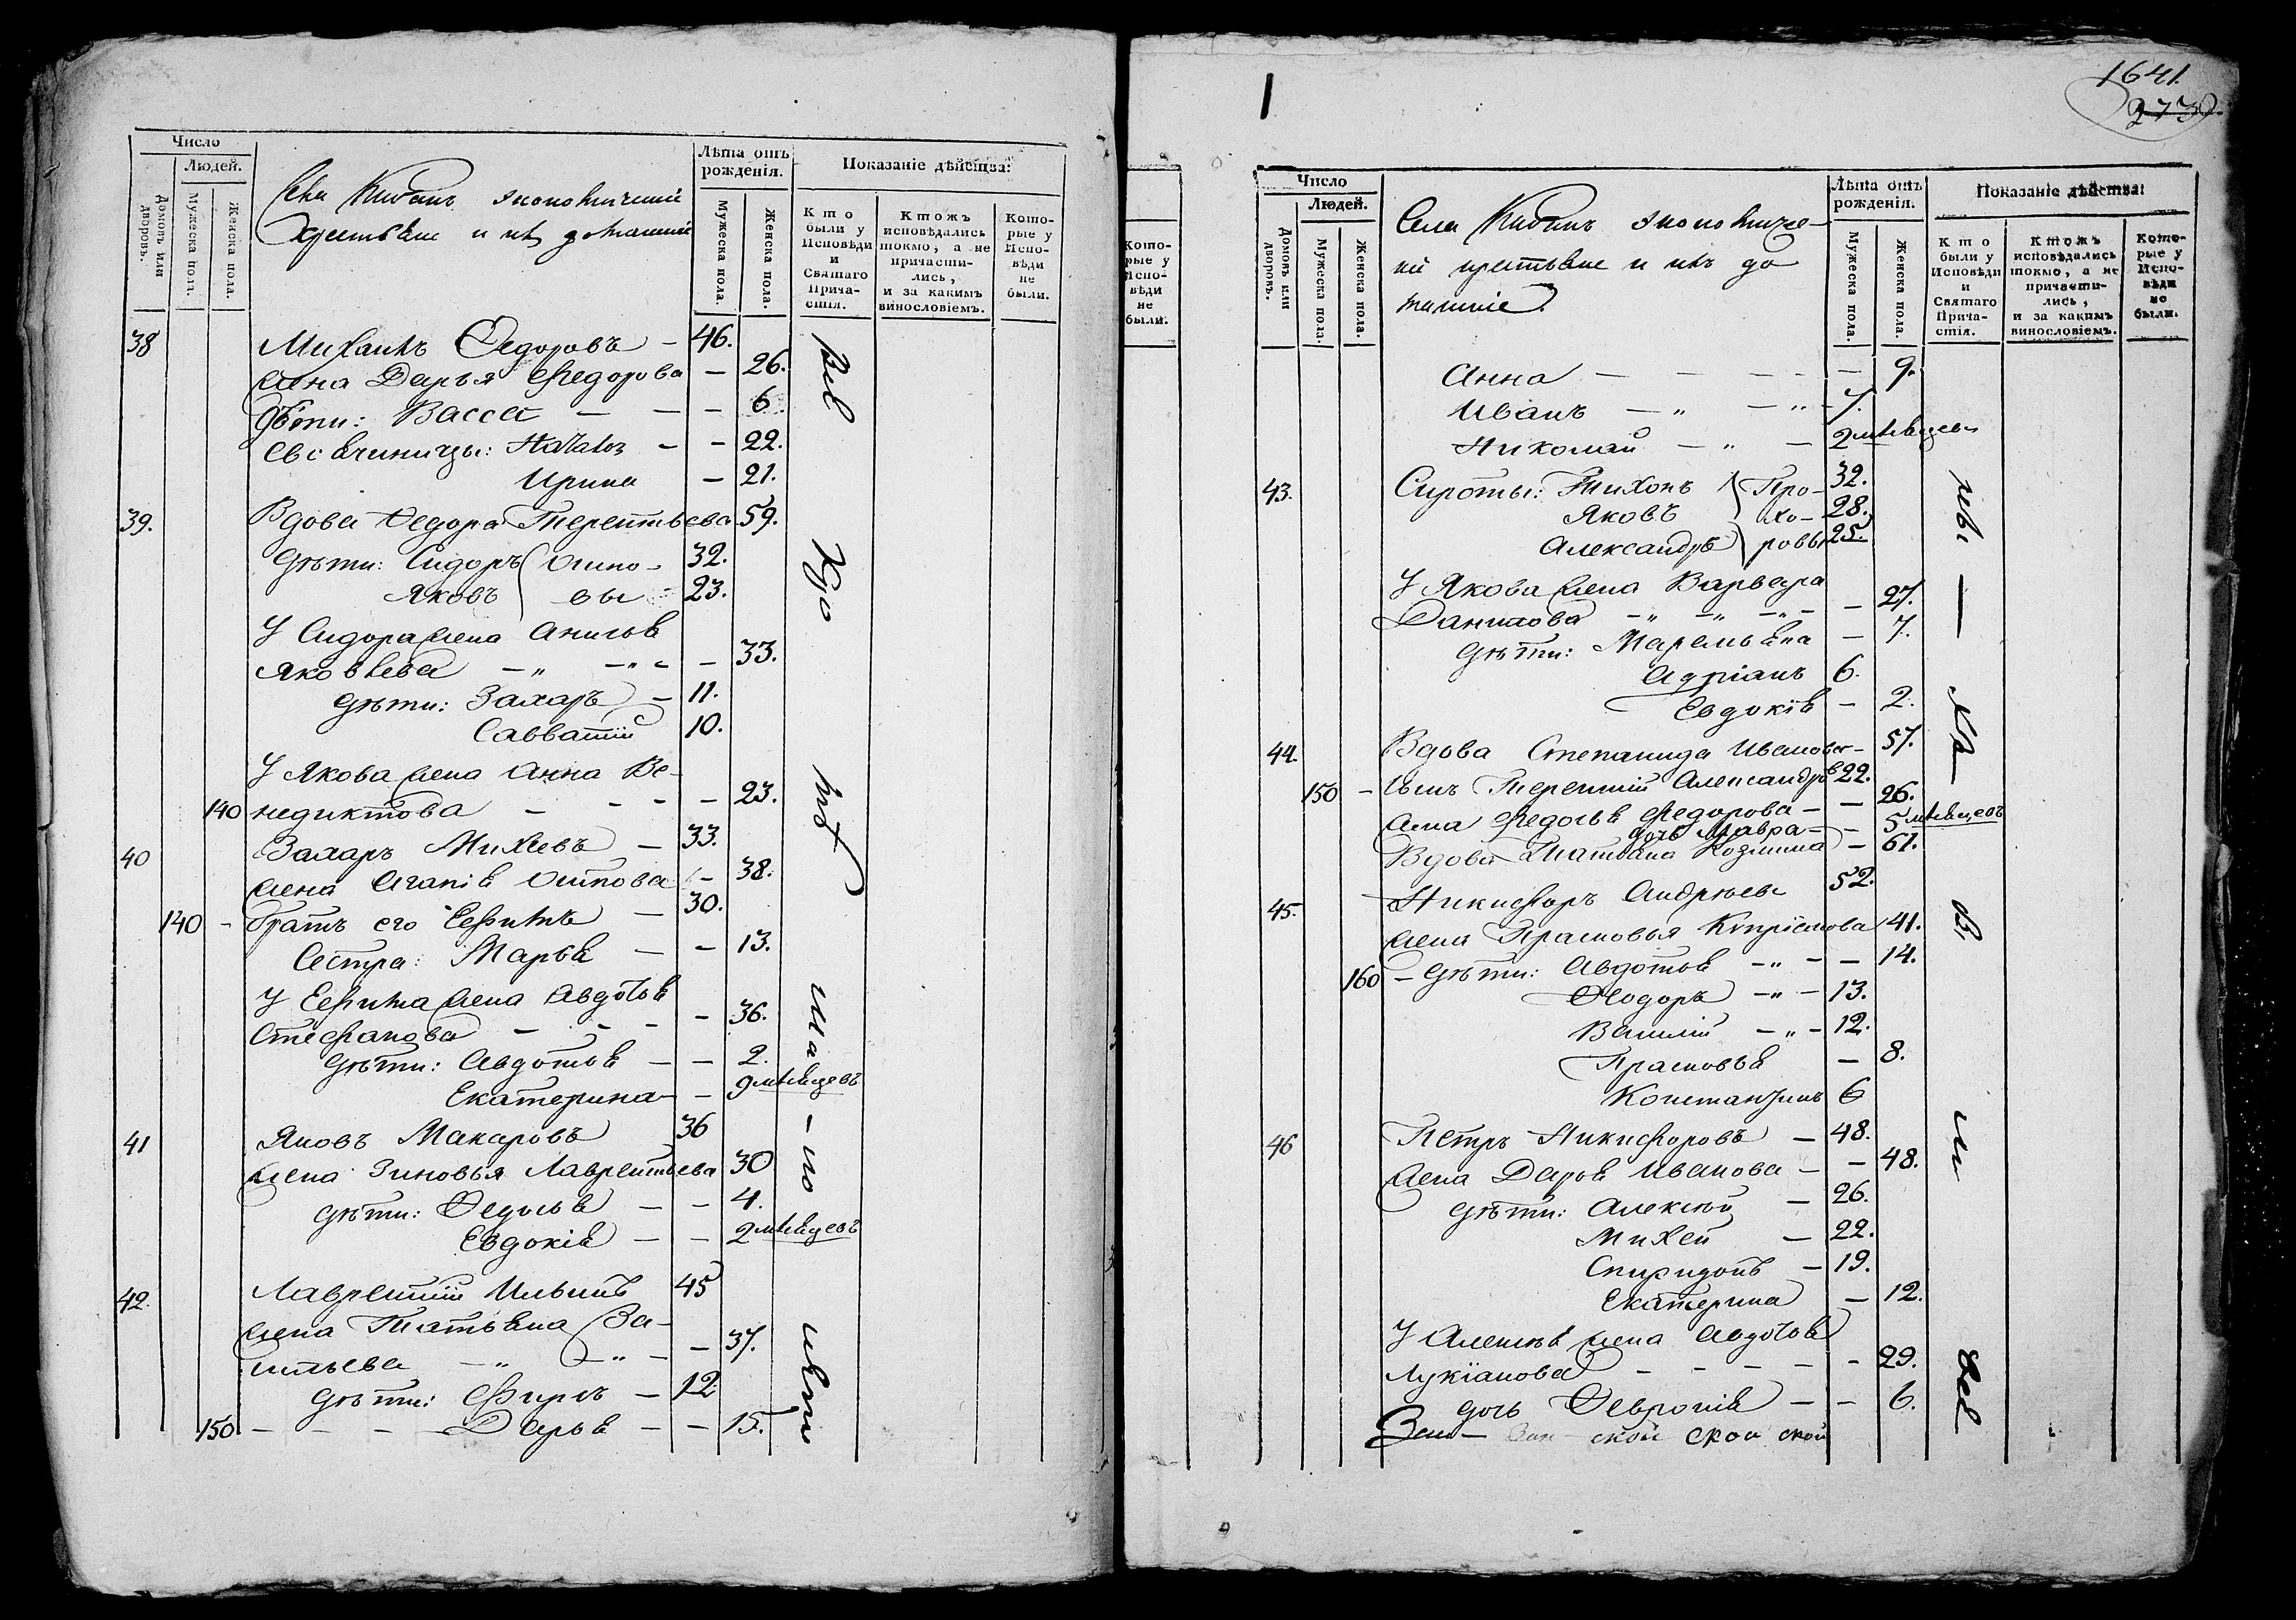 Число
Людей.
Домовъ или дворовъ.
Мужеска пола.
Женска пола.
Лѣта отъ рожденія.
Мужеска пола.
Женска пола.
Показаніе дѣйства:
Кто были у Исповѣди и Святаго Прича-стія.
Ктожъ исповѣдались токмо, а не причасти-лись, и за какимъ винословіемъ.
Кото-рые у Испо-вѣди не были.
Села экономическiй
Крестьяне и ихъ домашнiй
38 Михаилъ Ѳедоровъ – 46.
Жена Дарья Федорова – 26.
Дѣти: Васса – – – 6
Своячиницы: Наталья – – 22.
Ирина – 21.
39. Вдова Ѳедора Терентьева 59.
Дѣти: Сидоръ Осипо- 32.
Яковъ вы 23.
У Сидора жена Анисья
Яковлева – 33.
Дѣти: Захаръ – 11.
Савватій 10.
У Якова жена Анна Ве-
140 недиктова – – – – 23.
40 Захаръ Михѣевъ – 33.
Жена Агапія Осипова – 38.
140 – Братъ его Ефимъ – 30.
Сестра: Марья – – 13.
У Ефима жена Авдотья
Стефанова – – – – 36.
Дѣти: Авдотья – – 2.
Екатерина – – 9 мѣсяцевъ
41 Яковъ Макаровъ 36
Жена Зиновья Лаврентьева 30
Дѣти: Ѳедосья – – 4.
Евдокія – – 2 мѣсяцевъ
42. Лаврентій Ильинъ 45
Жена Татьяна Ва-
сильева – 37.
Дѣти: Фирсъ – 12
150 – – – Дарья – – 15.
1641.
2739.
Число
Людей.
Домовъ или дворовъ.
Мужеска пола.
Женска пола.
Лѣта отъ рожденія.
Мужеска пола.
Женска пола.
Показаніе дѣйства:
Кто были у Исповѣди и Святаго Прича-стія.
Ктожъ исповѣдались токмо, а не причасти-лись, и за какимъ винословіемъ.
Кото-рые у Испо-вѣди не были.
Села экономиче-
кiй крестьяне и ихъ до
машніе.
Анна – – – – – 9.
Иванъ – „ – „ – 7.
Николай – „ – 2 мѣсяцевъ
43. Сироты: Тихонъ Про- 32.
Яковъ хо- 28.
Александръ ровы 25.
У Якова жена Варвара
Данилова – „ – „ – „ – – 27.
Дѣти: Маремьяна – 7.
Адріанъ 6.
Евдокія – 2.
44. Вдова Степанида Иванова – 57.
150 – Сынъ Терентій Александровъ 22.
Жена Федосья Федорова – – 26.
дочь Мавра – – 5 мѣсяцевъ
Вдова Татьяна Козмина – 61.
45. Никифоръ Андрѣевъ 52.
Жена Прасковья Кипріанова 41.
160 – Дѣти: Авдотья – „ – – 14.
Ѳеодоръ – „ – 13.
Василій – „ – 12.
Прасковья – 8.
Константинъ 6
46 Петръ Никифоровъ – 48.
Жена Дарья Иванова – – 48.
Дѣти: Алексѣй – 26.
Михей – 22.
Спиридонъ – 19.
Екатерина – 12.
У Алексѣя жена Авдотья
Лукіанова – – – – – 29.
дочь Ѳевронія – – 6.